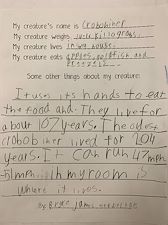 My creature's name is Crobobiner
My creature weighs kilograms.
My creature lives in my house.
My creature eats apples, goldfish and
Some other things about my creature:
It uses its hands to eat
the food and. They live for
about 107 years. The oldest
crobobiner lived for 204
years. It can run 47mph
-51mph. in my room is
where it lives.
By Bryce James